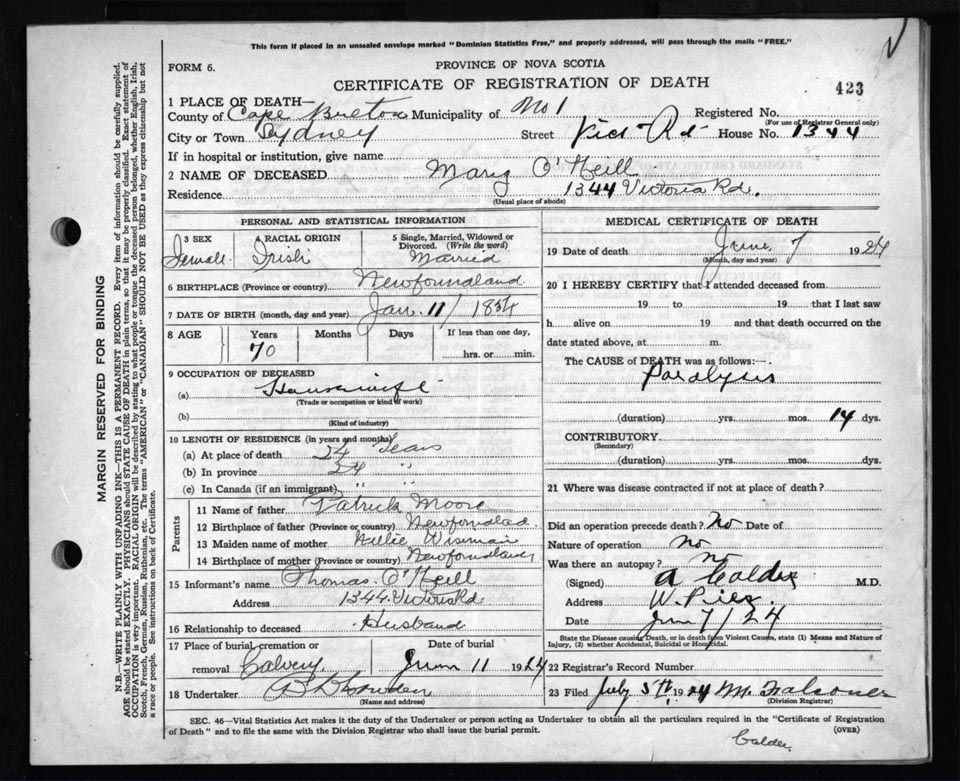 This form if placed in an unsealed envelope marked "Dominion Statistics Free," and properly addressed, will pass through the mails "FREE."
FORM 6.
PROVINCE OF NOVA SCOTIA
CERTIFICATE OF REGISTRATION OF DEATH
423
1 PLACE OF DEATH—
County of Cape Breton Municipality of No 1 Registered No.
(For use of Registrar General only)
City or Town Sydney Street Vict Rd House No. 1344
If in hospital or institution, give name
2 NAME OF DECEASED Mary O'Neill
Residence 1344 Victoria Rd.
(Usual place of abode)
PERSONAL AND STATISTICAL INFORMATION
3 SEX 4 RACIAL ORIGIN 5 Single, Married, Widowed or Divorced (Write the word)
Femall Irish Married
6 BIRTHPLACE (Province or country) Newfoundland
7 DATE OF BIRTH (month, day and year) Jan. 11/1854
8 AGE Years Months Days If less than one day,
70 hrs. or min.
9 OCCUPATION OF DECEASED
(a) Housewife
(Trade or occupation or kind of work)
(b)
(Kind of industry)
10 LENGTH OF RESIDENCE (in years and months)
(a) At place of death 24 Years
(b) In province 24 "
(c) In Canada (if an immigrant) " "
Parents
11 Name of father Patrick Moore
12 Birthplace of father (Province or country) Newfoundlad.
13 Maiden name of mother Nellie Wisman
14 Birthplace of mother (Province or country) Newfoundland
15 Informant's name Thomas O'Neill
Address 1344 Victoria Rd
16 Relationship to deceased Husband
17 Place of burial, cremation or removal Calvery Date of burial June 11 1924
18 Undertaker
(Name and address)
MEDICAL CERTIFICATE OF DEATH
19 Date of death June 7 1924
(Month, day and year)
20 I HEREBY CERTIFY that I attended deceased from
19 to 19 that I last saw
h alive on 19 and that death occurred on the
date stated above, at m.
The CAUSE OF DEATH was as follows:—
Paralysis
(duration) yrs. mos. 14 dys.
CONTRIBUTORY
(Secondary)
(duration) yrs. mos. dys.
21 Where was disease contracted if not at place of death?
Did an operation precede death? No Date of
Nature of operation No
Was there an autopsy? No
(Signed) A Calder M.D.
Address W. Pier.
Date Jun 7/24
State the Disease causing Death, or in death from Violent Causes, state (1) Means and Nature of Injury, (2) whether Accidental, Suicidal or Homicidal.
22 Registrar's Record Number
23 Filed July 5th 1924 M. Falconer
(Division Registrar)
SEC. 46—Vital Statistics Act makes it the duty of the Undertaker or person acting as Undertaker to obtain all the particulars required in the "Certificate of Registration
of Death" and to file the same with the Division Registrar who shall issue the burial permit. (OVER)
Calder.
MARGIN RESERVED FOR BINDING
N.B.—WRITE PLAINLY, WITH UNFADING INK—THIS IS A PERMANENT RECORD. Every item of information should be carefully supplied.
AGE should be stated EXACTLY. PHYSICIANS should STATE CAUSE OF DEATH in plain terms, so that it may be properly classified. Exact statement of
OCCUPATION is very important. RACIAL ORIGIN will be described by stating to what people or tongue the deceased person belonged, whether English, Irish,
Scotch, French, German, Russian, Ruthenian, etc. The terms "AMERICAN" or "CANADIAN" SHOULD NOT BE USED as they express citizenship but not
a race or people. See instructions on back of Certificate.